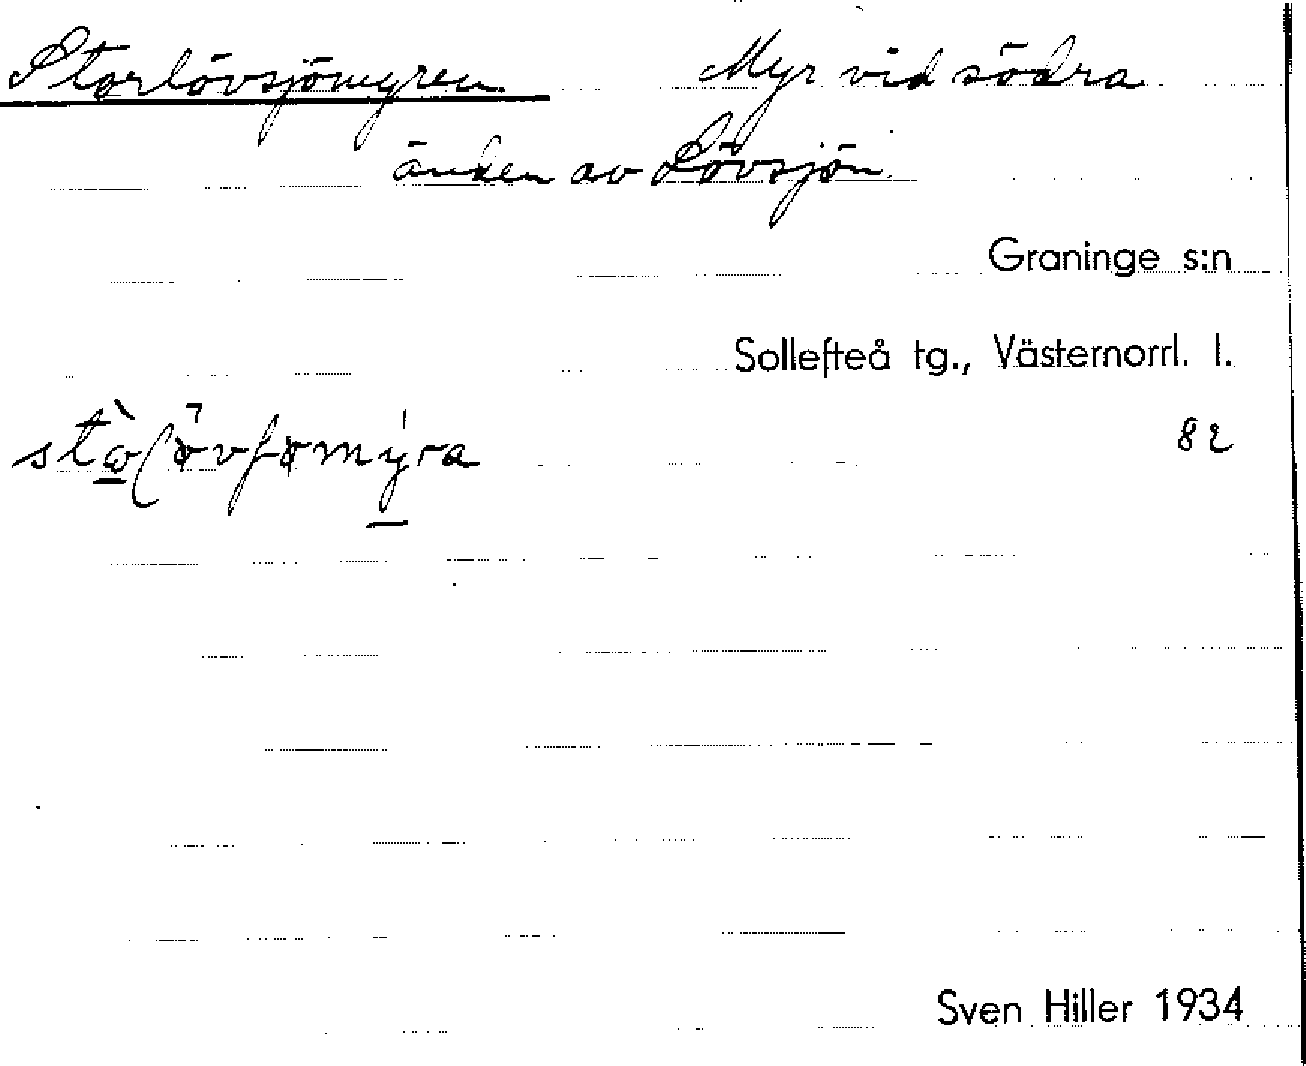 Storlövsjömyren Myr vid södra
änden av Lövsjön
Graninge s:n
Sollefteå tg., Västernorrl. l.
82
Sven Hiller 1934